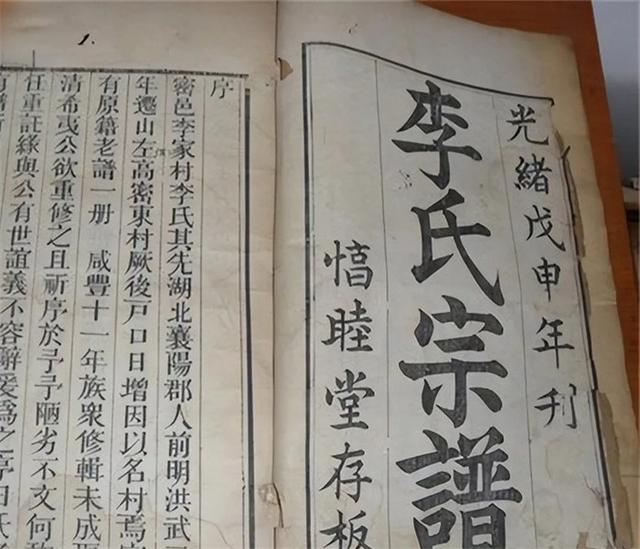 光緒戊申年刋
李氏宗譜
惇睦堂存板
序
密邑李家村李氏其先湖北襄陽郡人前明洪武
年遷山左高密東村厥後戸口日增因以名村焉
有原籍老譜一册 咸豐十一年族衆修輯未成
清希夷公欲重修之且祈序於予予陋劣不文何
任重託緣與公有世誼義不容辭爰爲之序曰氏
1.